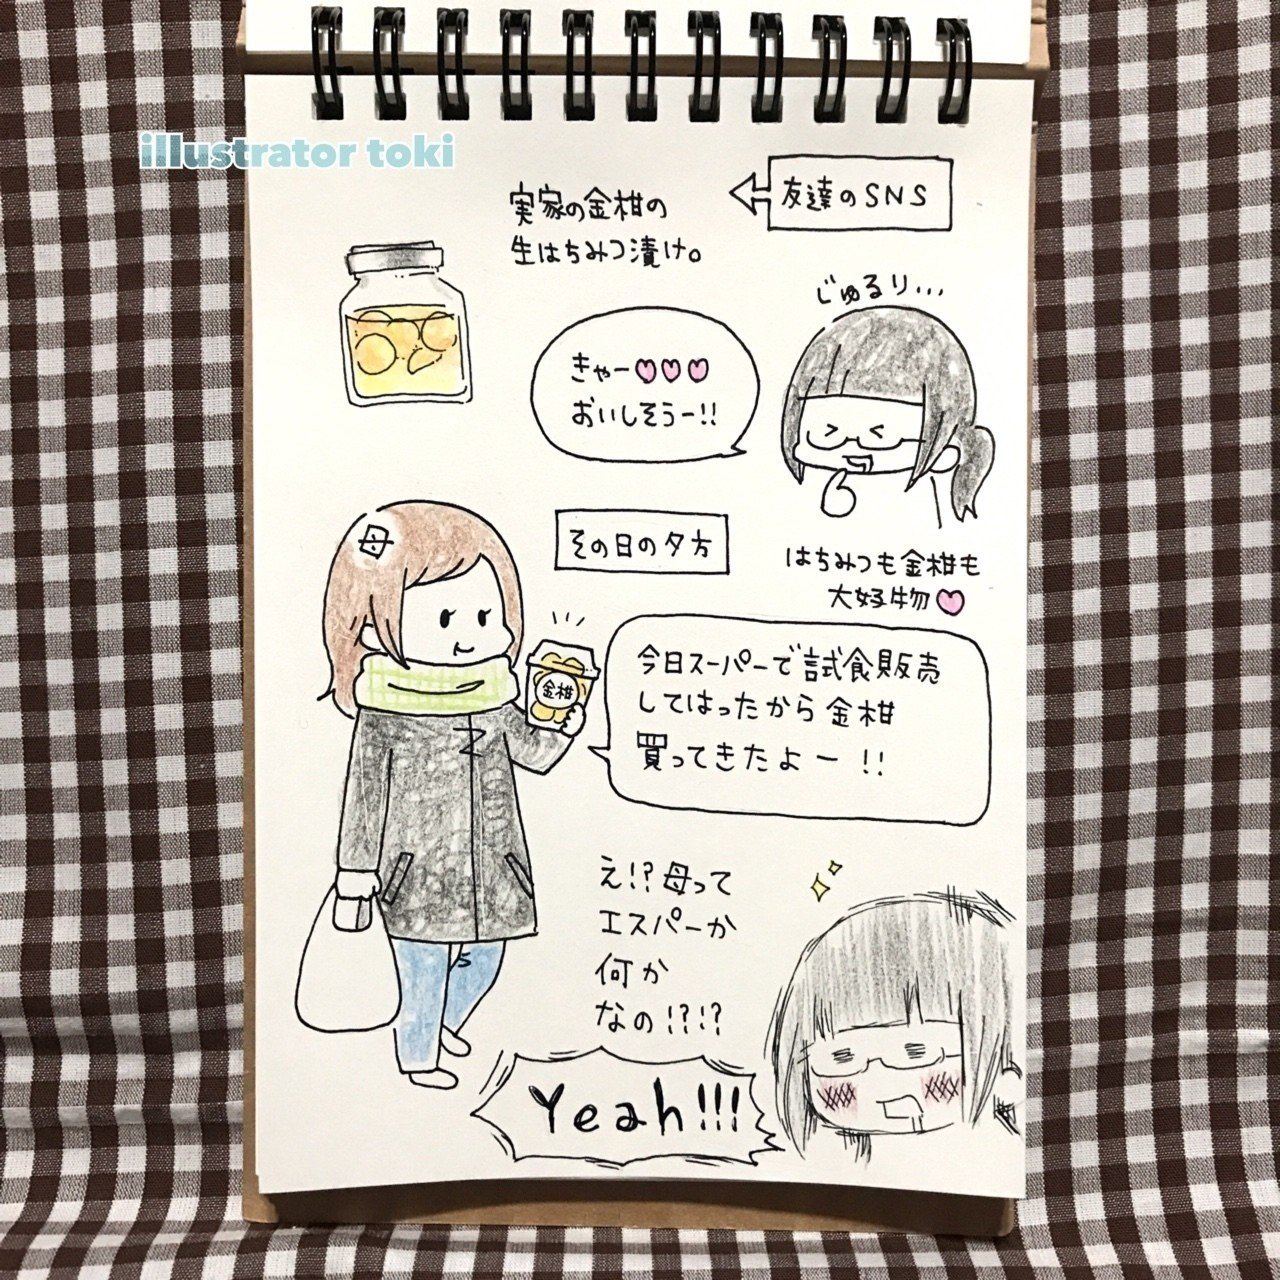 illustrator toki
友達のSNS
実家の金柑の
生はちみつ漬け。
じゅるり…
きゃー♡♡♡
おいしそうー!!
はちみつも金柑も
大好物♡
その日の夕方
母
金柑
今日スーパーで試食販売
してはったから金柑
買ってきたよー!!
え!?母って
エスパーか
何か
なの!?!?
Yeah!!!